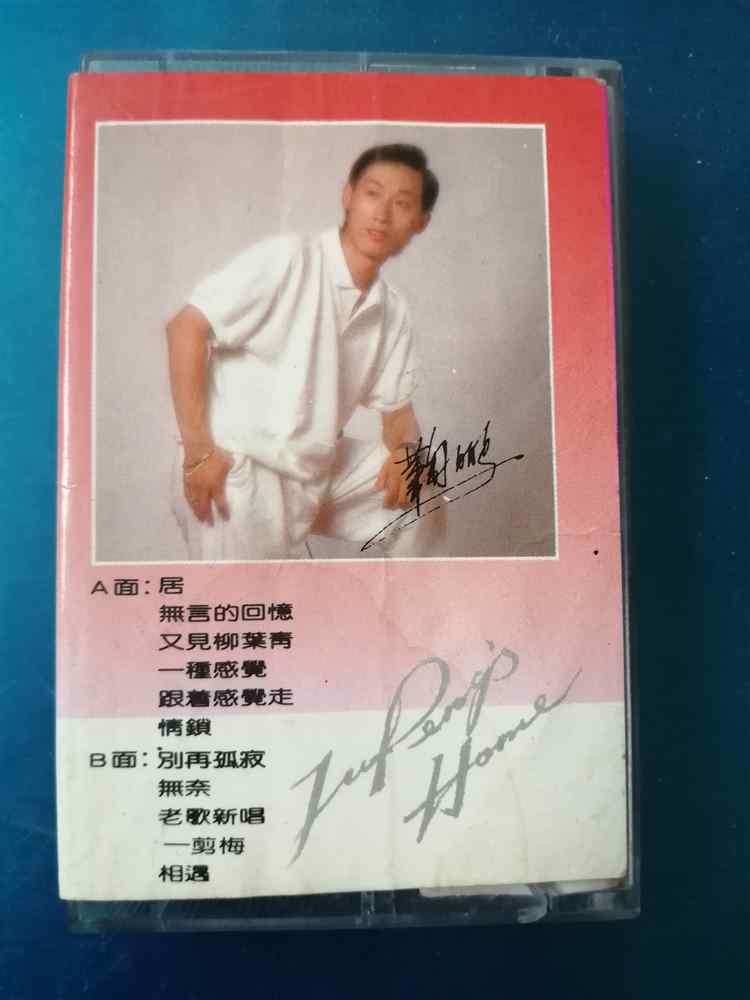 鞠鹏
A面：居
無言的回憶
又見柳葉青
一種感覺
跟着感覺走
情鎖
B面：別再孤寂
無奈
老歌新唱
一剪梅
相遇
JuPeng's
Home